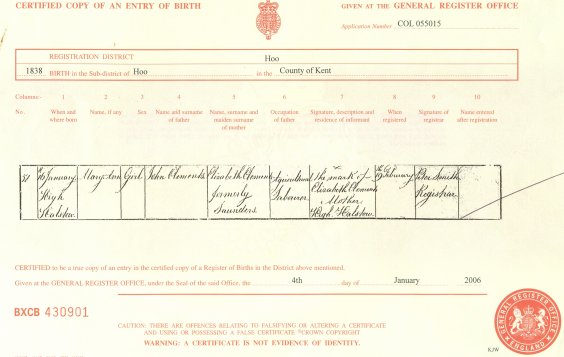 CERTIFIED COPY OF AN ENTRY OF BIRTH
GIVEN AT THE GENERAL REGISTER OFFICE
Application Number COL 055015
REGISTRATION DISTRICT Hoo
1838 BIRTH in the Sub-district of Hoo in the County of Kent
Columns:- 1 2 3 4 5 6 7 8 9 10
No. When and where born Name, if any Sex Name and surname of father Name, surname and maiden surname of mother Occupation of father Signature, description and residence of informant When registered Signature of registrar Name entered after registration
January High Halstow
Girl
John Clements
Elizabeth Clements formerly Saunders
Agricultural Labourer
the mark of Elizabeth Clements Mother High Halstow
February
Smith Registrar
CERTIFIED to be a true copy of an entry in the certified copy of a Register of Births in the District above mentioned.
Given at the GENERAL REGISTER OFFICE, under the Seal of the said Office, the 4th day of January 2006
BXCB 430901
CAUTION: THERE ARE OFFENCES RELATING TO FALSIFYING OR ALTERING A CERTIFICATE
AND USING OR POSSESSING A FALSE CERTIFICATE ©CROWN COPYRIGHT
WARNING: A CERTIFICATE IS NOT EVIDENCE OF IDENTITY.
GENERAL REGISTER OFFICE
ENGLAND
KJW